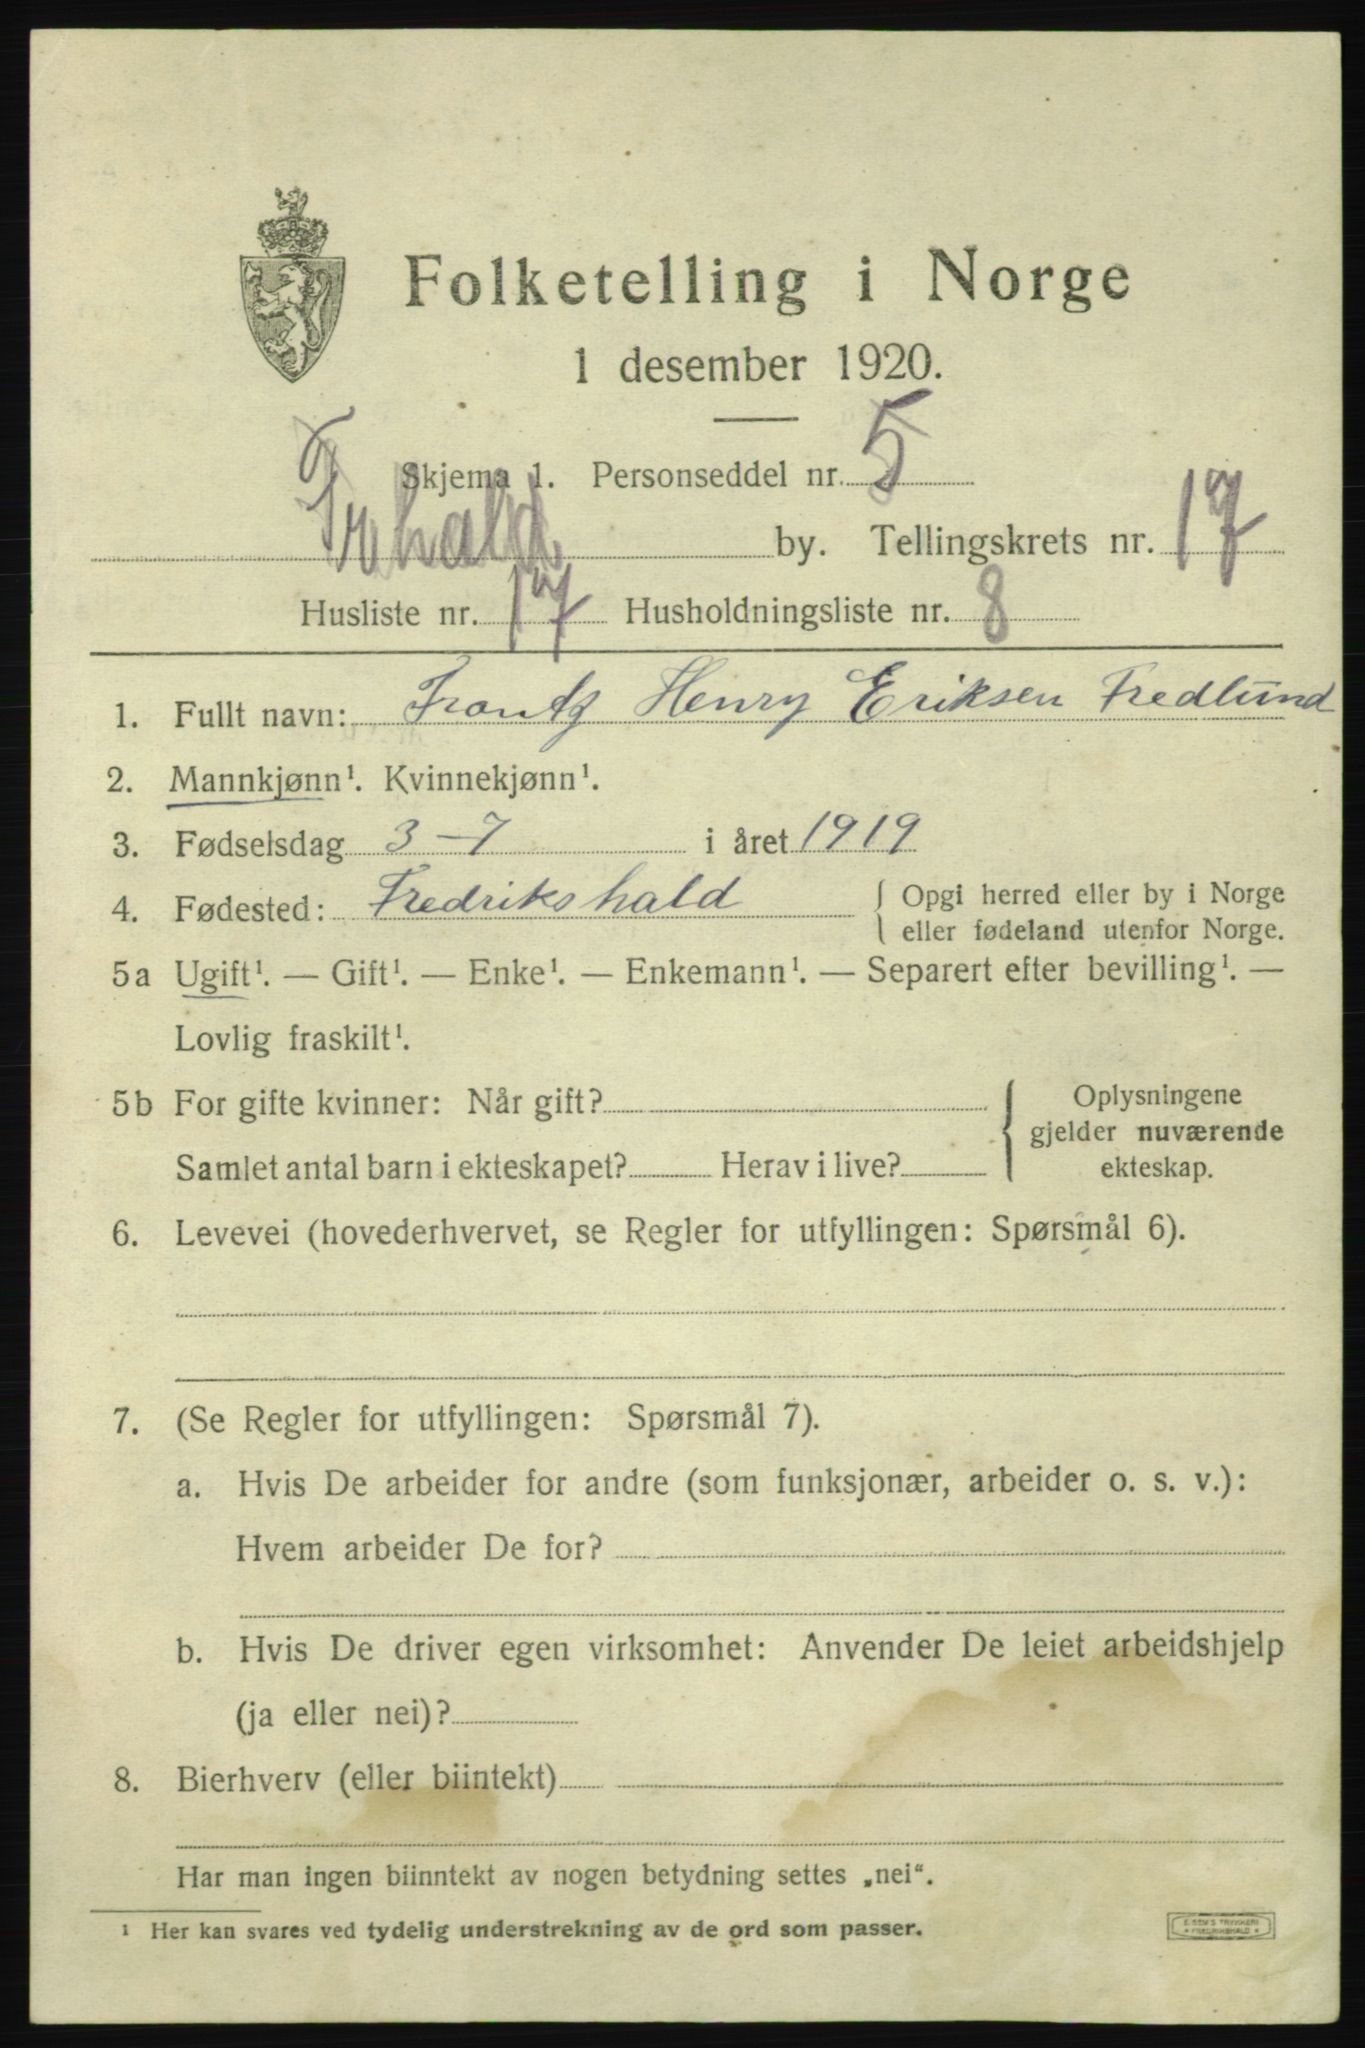 Folketelling i Norge
1 desember 1920.
Skjema 1. Personseddel nr. 5
Frhald by. Tellingskrets nr. 17
Husliste nr. 17 Husholdningsliste nr. 8
1. Fullt navn: Frantz Henry Eriksen Fredlund
2. Mannkjønn¹. Kvinnekjønn¹.
3. Fødselsdag 3-7 i året 1919
4. Fødested: Fredrikshald { Opgi herred eller by i Norge
eller fødeland utenfor Norge.
5a Ugift¹. — Gift¹. — Enke¹. — Enkemann¹. — Separert efter bevilling¹. —
Lovlig fraskilt¹.
5b For gifte kvinner: Når gift? { Oplysningene
gjelder nuværende
Samlet antal barn i ekteskapet? Herav i live? ekteskap.
6. Levevei (hovederhvervet, se Regler for utfyllingen: Spørsmål 6).
7. (Se Regler for utfyllingen: Spørsmål 7).
a. Hvis De arbeider for andre (som funksjonær, arbeider o. s. v.):
Hvem arbeider De for?
b. Hvis De driver egen virksomhet: Anvender De leiet arbeidshjelp
(ja eller nei)?
8. Bierhverv (eller biintekt)
Har man ingen biinntekt av nogen betydning settes „nei“.
¹ Her kan svares ved tydelig understrekning av de ord som passer.
E. SEMS TRYKKERI
* FREDRIKSHALD *